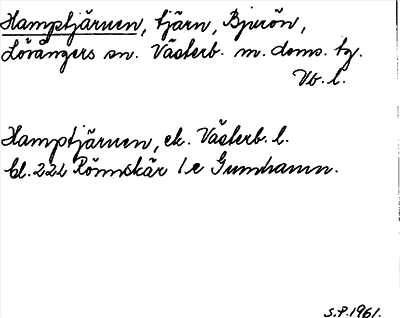 Hamptjärnen, tjärn, Bjurön,
Lövångers sn. Västerb. m. doms. tg.
Vb. l.
Hamptjärnen, ek. Västerb. l.
bl. 221 Rönnskär 1 c Gumhamn.
S.P. 1961.